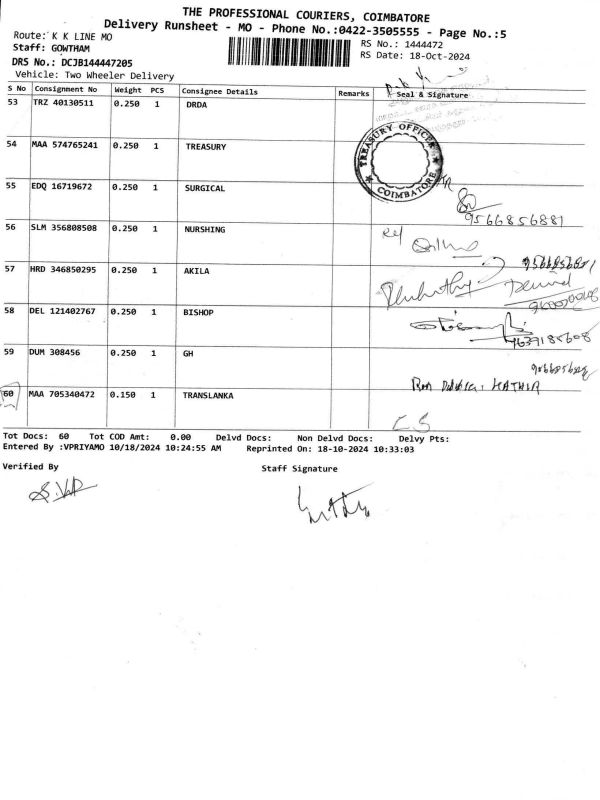 THE PROFESSIONAL COURIERS, COIMBATORE
Delivery Runsheet - MO - Phone No.:0422-3505555 - Page No.:5
Route: K K LINE MO
Staff: GOWTHAM
RS No.: 1444472
RS Date: 18-Oct-2024
DRS No.: DCJB144447205
Vehicle: Two Wheeler Delivery
S No Consignment No Weight PCS Consignee Details Remarks Seal & Signature
53 TRZ 40130511 0.250 1 DRDA
54 MAA 574765241 0.250 1 TREASURY
TREASURY OFFICER
COIMBATORE
55 EDQ 16719672 0.250 1 SURGICAL
9566856881
56 SLM 356808508 0.250 1 NURSHING
57 HRD 346850295 0.250 1 AKILA
58 DEL 121402767 0.250 1 BISHOP
59 DUM 308456 0.250 1 GH
60 MAA 705340472 0.150 1 TRANSLANKA
Tot Docs: 60 Tot COD Amt: 0.00 Delvd Docs: Non Delvd Docs: Delvy Pts:
Entered By :VPRIYAMO 10/18/2024 10:24:55 AM Reprinted On: 18-10-2024 10:33:03
Verified By Staff Signature